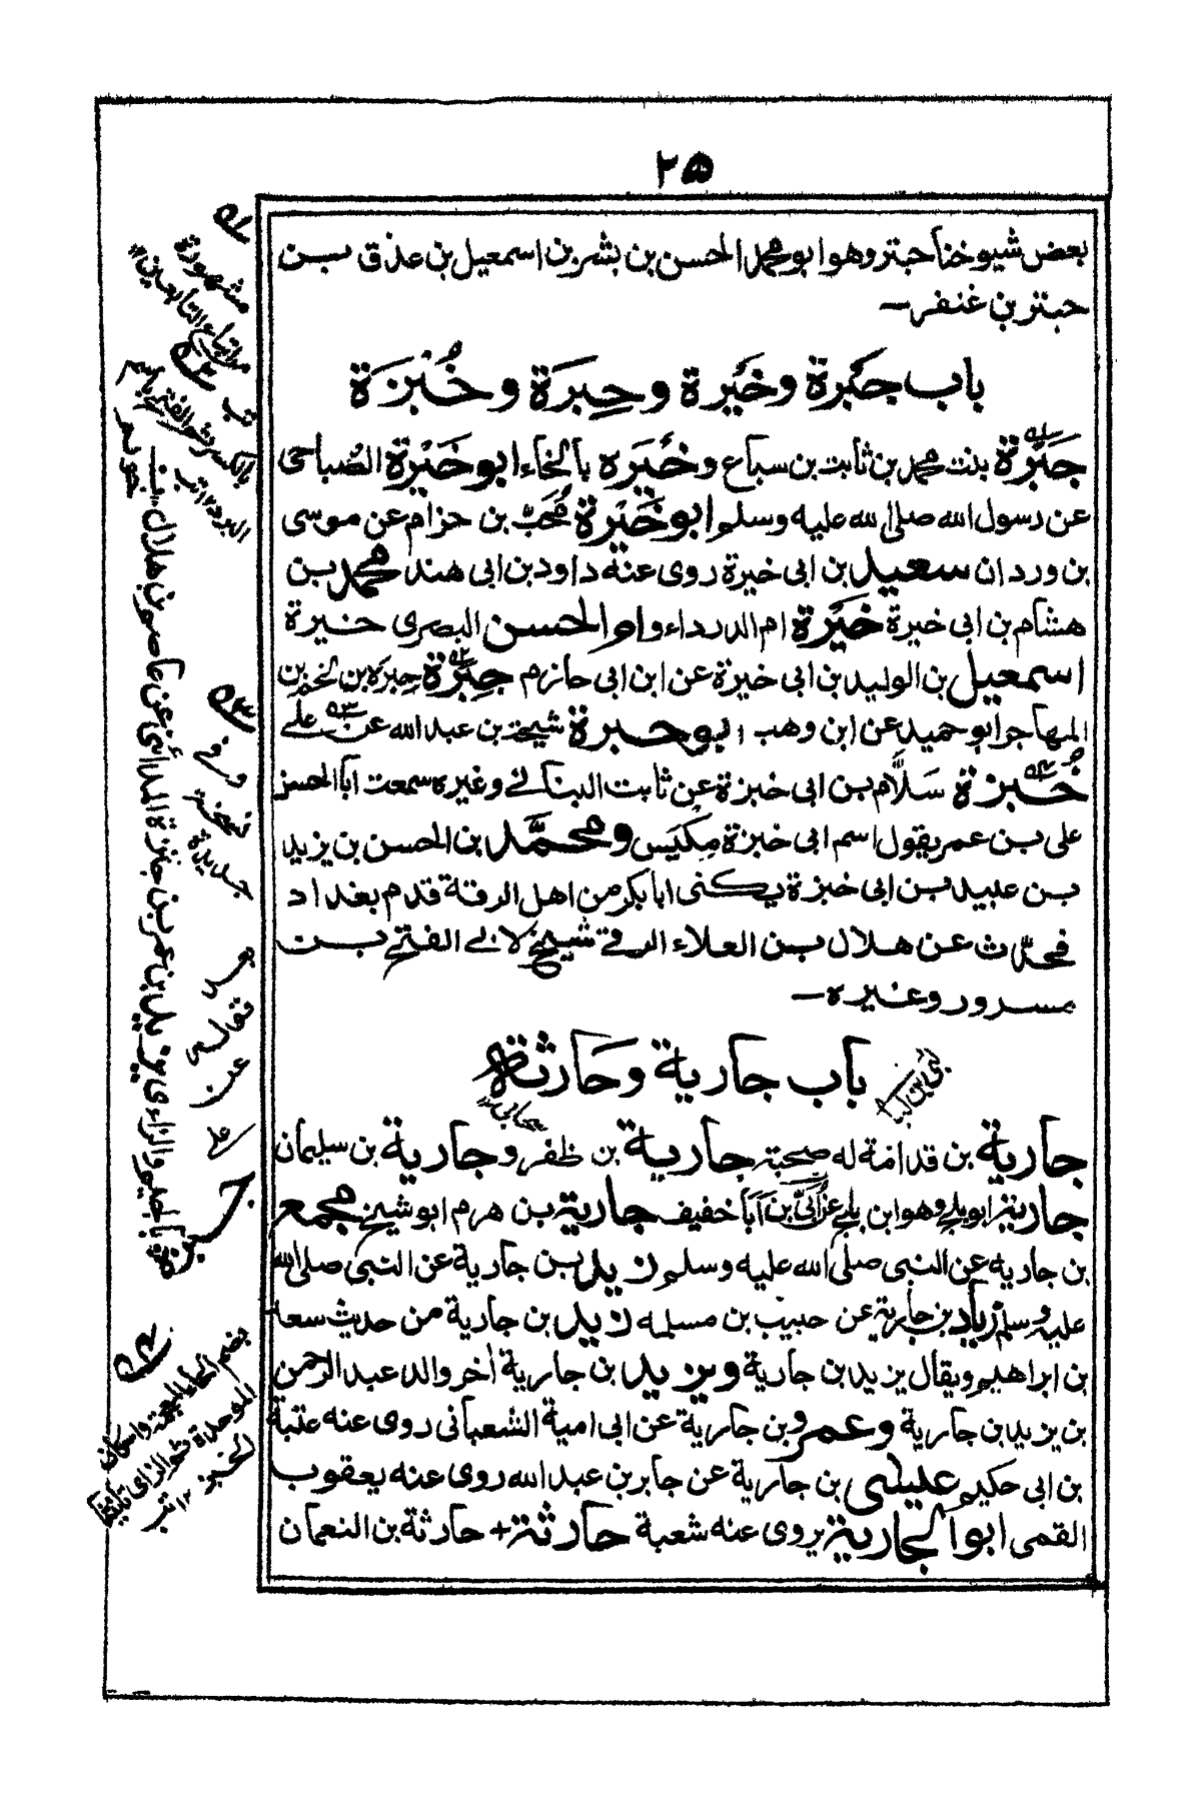 ٢٥
بعض شيوخنا حبتر وهو ابو محمد الحسن بن بشر بن اسمعيل بن عذق بن
حبتر بن غنفر —
باب جَبَرة وخَيْرة وحِبَرَة وخُبْزَة
جَبَرَة بنت محمد بن ثابت بن سباع وخَيْرَه بالخاء ابو خَيْرَة الصُباحى
عن رسول الله صلى الله عليه وسلم ابو خَيْرَة مُحَبّ بن حزام عن موسى
بن وردان سعيد بن ابى خيرة روى عنه داود بن ابى هند محمد بن
هشام بن ابى خيرة خَيْرَة ام الدرداء وام الحسن البصرى خيرة
اسمعيل بن الوليد بن ابى خيرة عن ابن ابى حازم حِبَرَة حِبَرَه بن لخم بن
المهاجر ابو حميد عن ابن وهب ابو حبرة شيحة بن عبد الله عن على
خُبزة سَلَّام بن ابى خبزة عن ثابت البنانى وغيره سمعت ابا الحسن
على بن عمر يقول اسم ابى خبزة مِكيَس ومحمَّد بن الحسن بن يزيد
بن عبيد بن ابى خبزة يكنى ابا بكر من اهل الرقة قدم بغداد
فحدّث عن هلال بن العلاء الرقى شيخ لابى الفتح بن
مسرور وغيره —
باب جارية وحَارثة
جارية بن قدامة له صحبة جارية بن ظفر وجارية بن سليمان
جارية ابو بلج وهو ابن بلج عن أبىّ بن أبا خفيف جارية بن هرم ابو شيخ مجمع
بن جارية عن النبى صلى الله عليه وسلم زيد بن جارية عن النبى صلى الله
عليه وسلم زياد بن جارية عن حبيب بن مسلمه زيد بن جارية من حديث سعد
بن ابراهيم ويقال يزيد بن جارية ويزيد بن جارية أخر والد عبد الرحمن
بن يزيد بن جارية وعمرو بن جارية عن ابى امية الشعبانى روى عنه عتبة
بن ابى حكيم عيسى بن جارية عن جابر بن عبد الله روى عنه يعقوب
القمى ابو الجارية يروى عنه شعبة حارثة + حارثة بن النعمان
مشهورة
من اتباع التابعين
وفى
نسخة
جديدة
عن
على
بضم الخاء المعجمة واسكان
الموحدة ثم الزاى